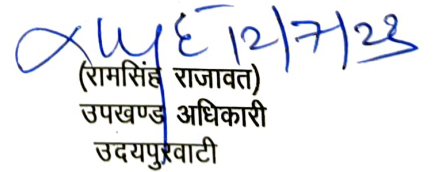 12/7/23
(रामसिंह राजावत)
उपखण्ड अधिकारी
उदयपुरवाटी